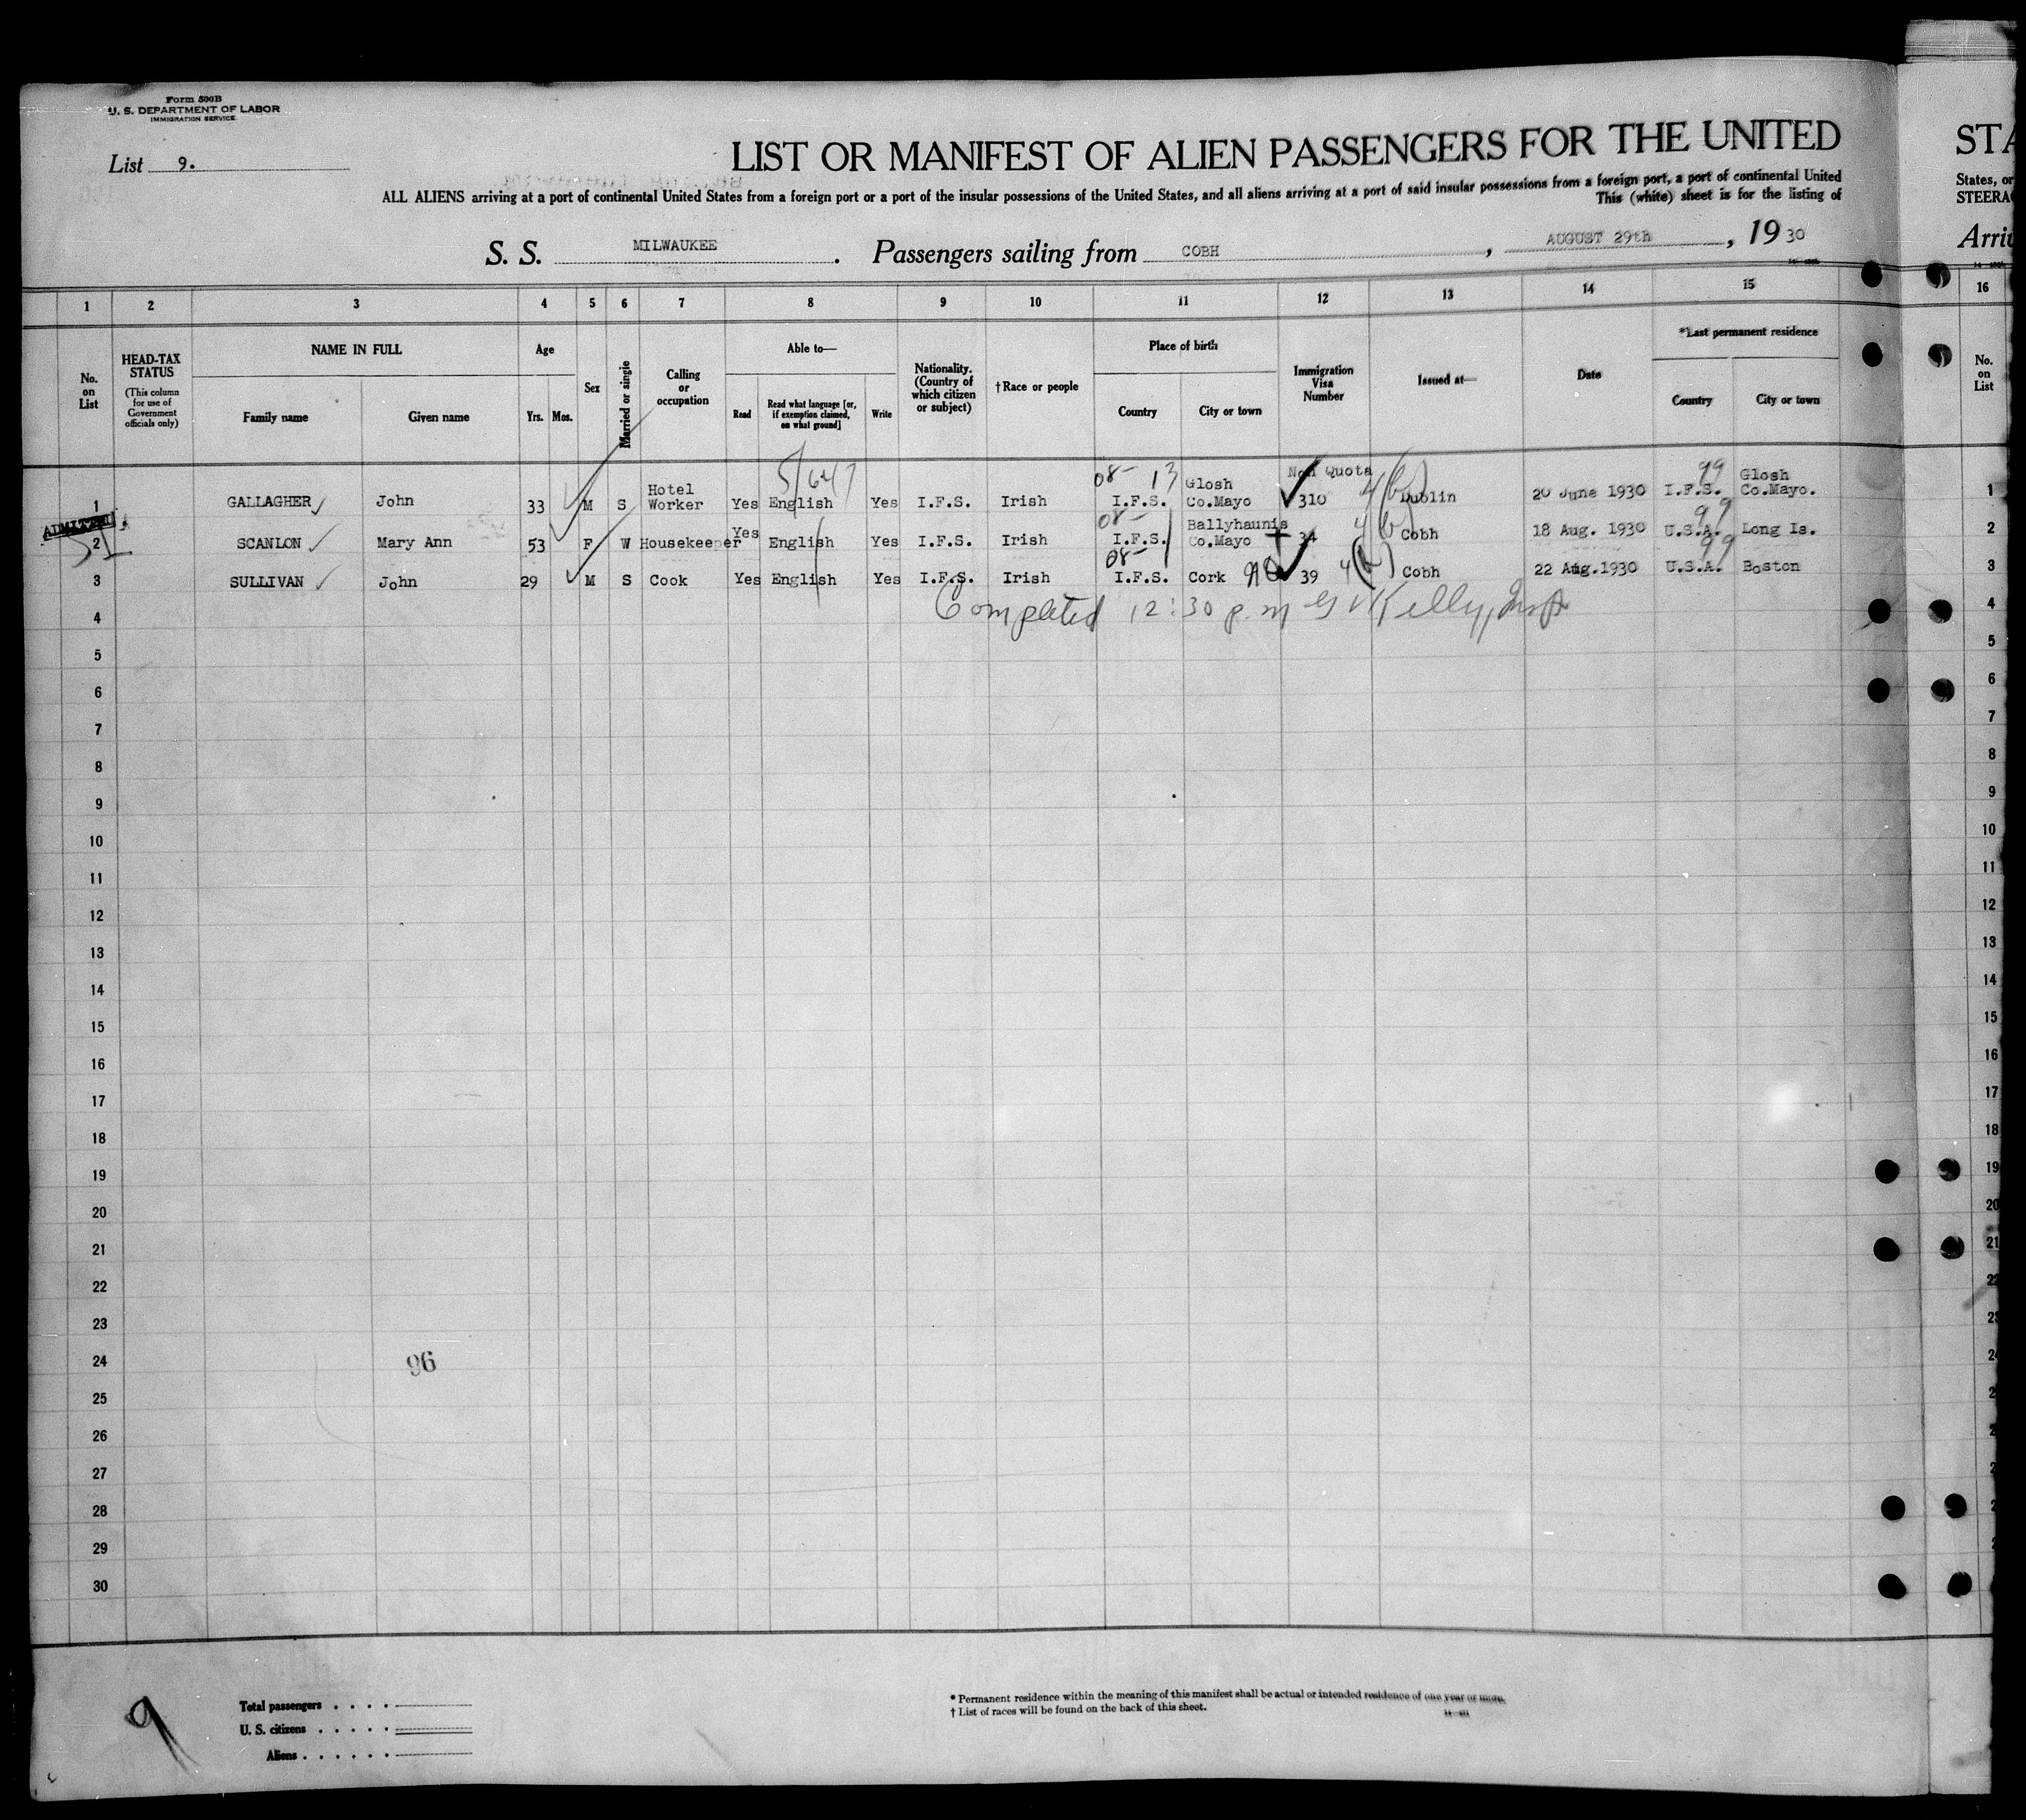 Form 500B
U. S. DEPARTMENT OF LABOR
IMMIGRATION SERVICE
List 9.
LIST OR MANIFEST OF ALIEN PASSENGERS FOR THE UNITED
STA
ALL ALIENS arriving at a port of continental United States from a foreign port or a port of the insular possessions of the United States, and all aliens arriving at a port of said insular possessions from a foreign port, a port of continental United
States, or
This (white) sheet is for the listing of
STEERA
S. S. MILWAUKEE. Passengers sailing from COBH, AUGUST 29th, 1930
Arri
1 2 3 4 5 6 7 8 9 10 11 12 13 14 15 16
No. on List
HEAD-TAX STATUS
(This column for use of Government officials only)
NAME IN FULL
Family name Given name
Age
Yrs. Mos.
Sex
Married or single
Calling or occupation
Able to—
Read
Read what language [or, if exemption claimed, on what ground]
Write
Nationality. (Country of which citizen or subject)
†Race or people
Place of birth
Country City or town
Immigration Visa Number
Issued at—
Date
*Last permanent residence
Country City or town
No. on List
1 GALLAGHER John 33 M S Hotel Worker Yes English Yes I.F.S. Irish 08- 13 I.F.S. Glosh Co.Mayo Non Quota 310 4(b) Dublin 20 June 1930 99 I.F.S. Glosh Co.Mayo. 1
ADMITTED
2 SCANLON Mary Ann 53 F W Housekeeper Yes English Yes I.F.S. Irish 08- I.F.S. Ballyhaunis Co.Mayo 34 4(b) Cobh 18 Aug. 1930 99 U.S.A. Long Is. 2
3 SULLIVAN John 29 M S Cook Yes English Yes I.F.S. Irish 08- I.F.S. Cork 39 4(b) Cobh 22 Aug.1930 99 U.S.A. Boston 3
Completed 12:30 p.m Kelly, Insp
4 4
5 5
6 6
7 7
8 8
9 9
10 10
11 11
12 12
13 13
14 14
15 15
16 16
17 17
18 18
19 19
20 20
21 21
22 22
23 23
24 96 24
25 2
26 2
27 2
28 2
29 2
30
9
Total passengers
U. S. citizens
Aliens
* Permanent residence within the meaning of this manifest shall be actual or intended residence of one year or more.
† List of races will be found on the back of this sheet.